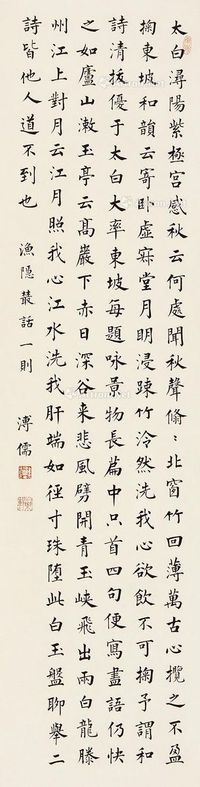 太白潯陽紫極宮感秋云何處聞秋聲翛〻北窗竹回薄萬古心攬之不盈
掬東坡和韻云寄卧虛寂堂月明浸疎竹泠然洗我心欲飲不可掬予謂和
詩清拔優于太白大率東坡每題咏景物長篇中只首四句便寫盡語仍快
之如廬山漱玉亭云高巖下赤日深谷来悲風劈開青玉峽飛出兩白龍滕
州江上對月云江月照我心江水洗我肝端如徑寸珠墮此白玉盤聊舉二
詩皆他人道不到也
漁隱叢話一則 溥儒